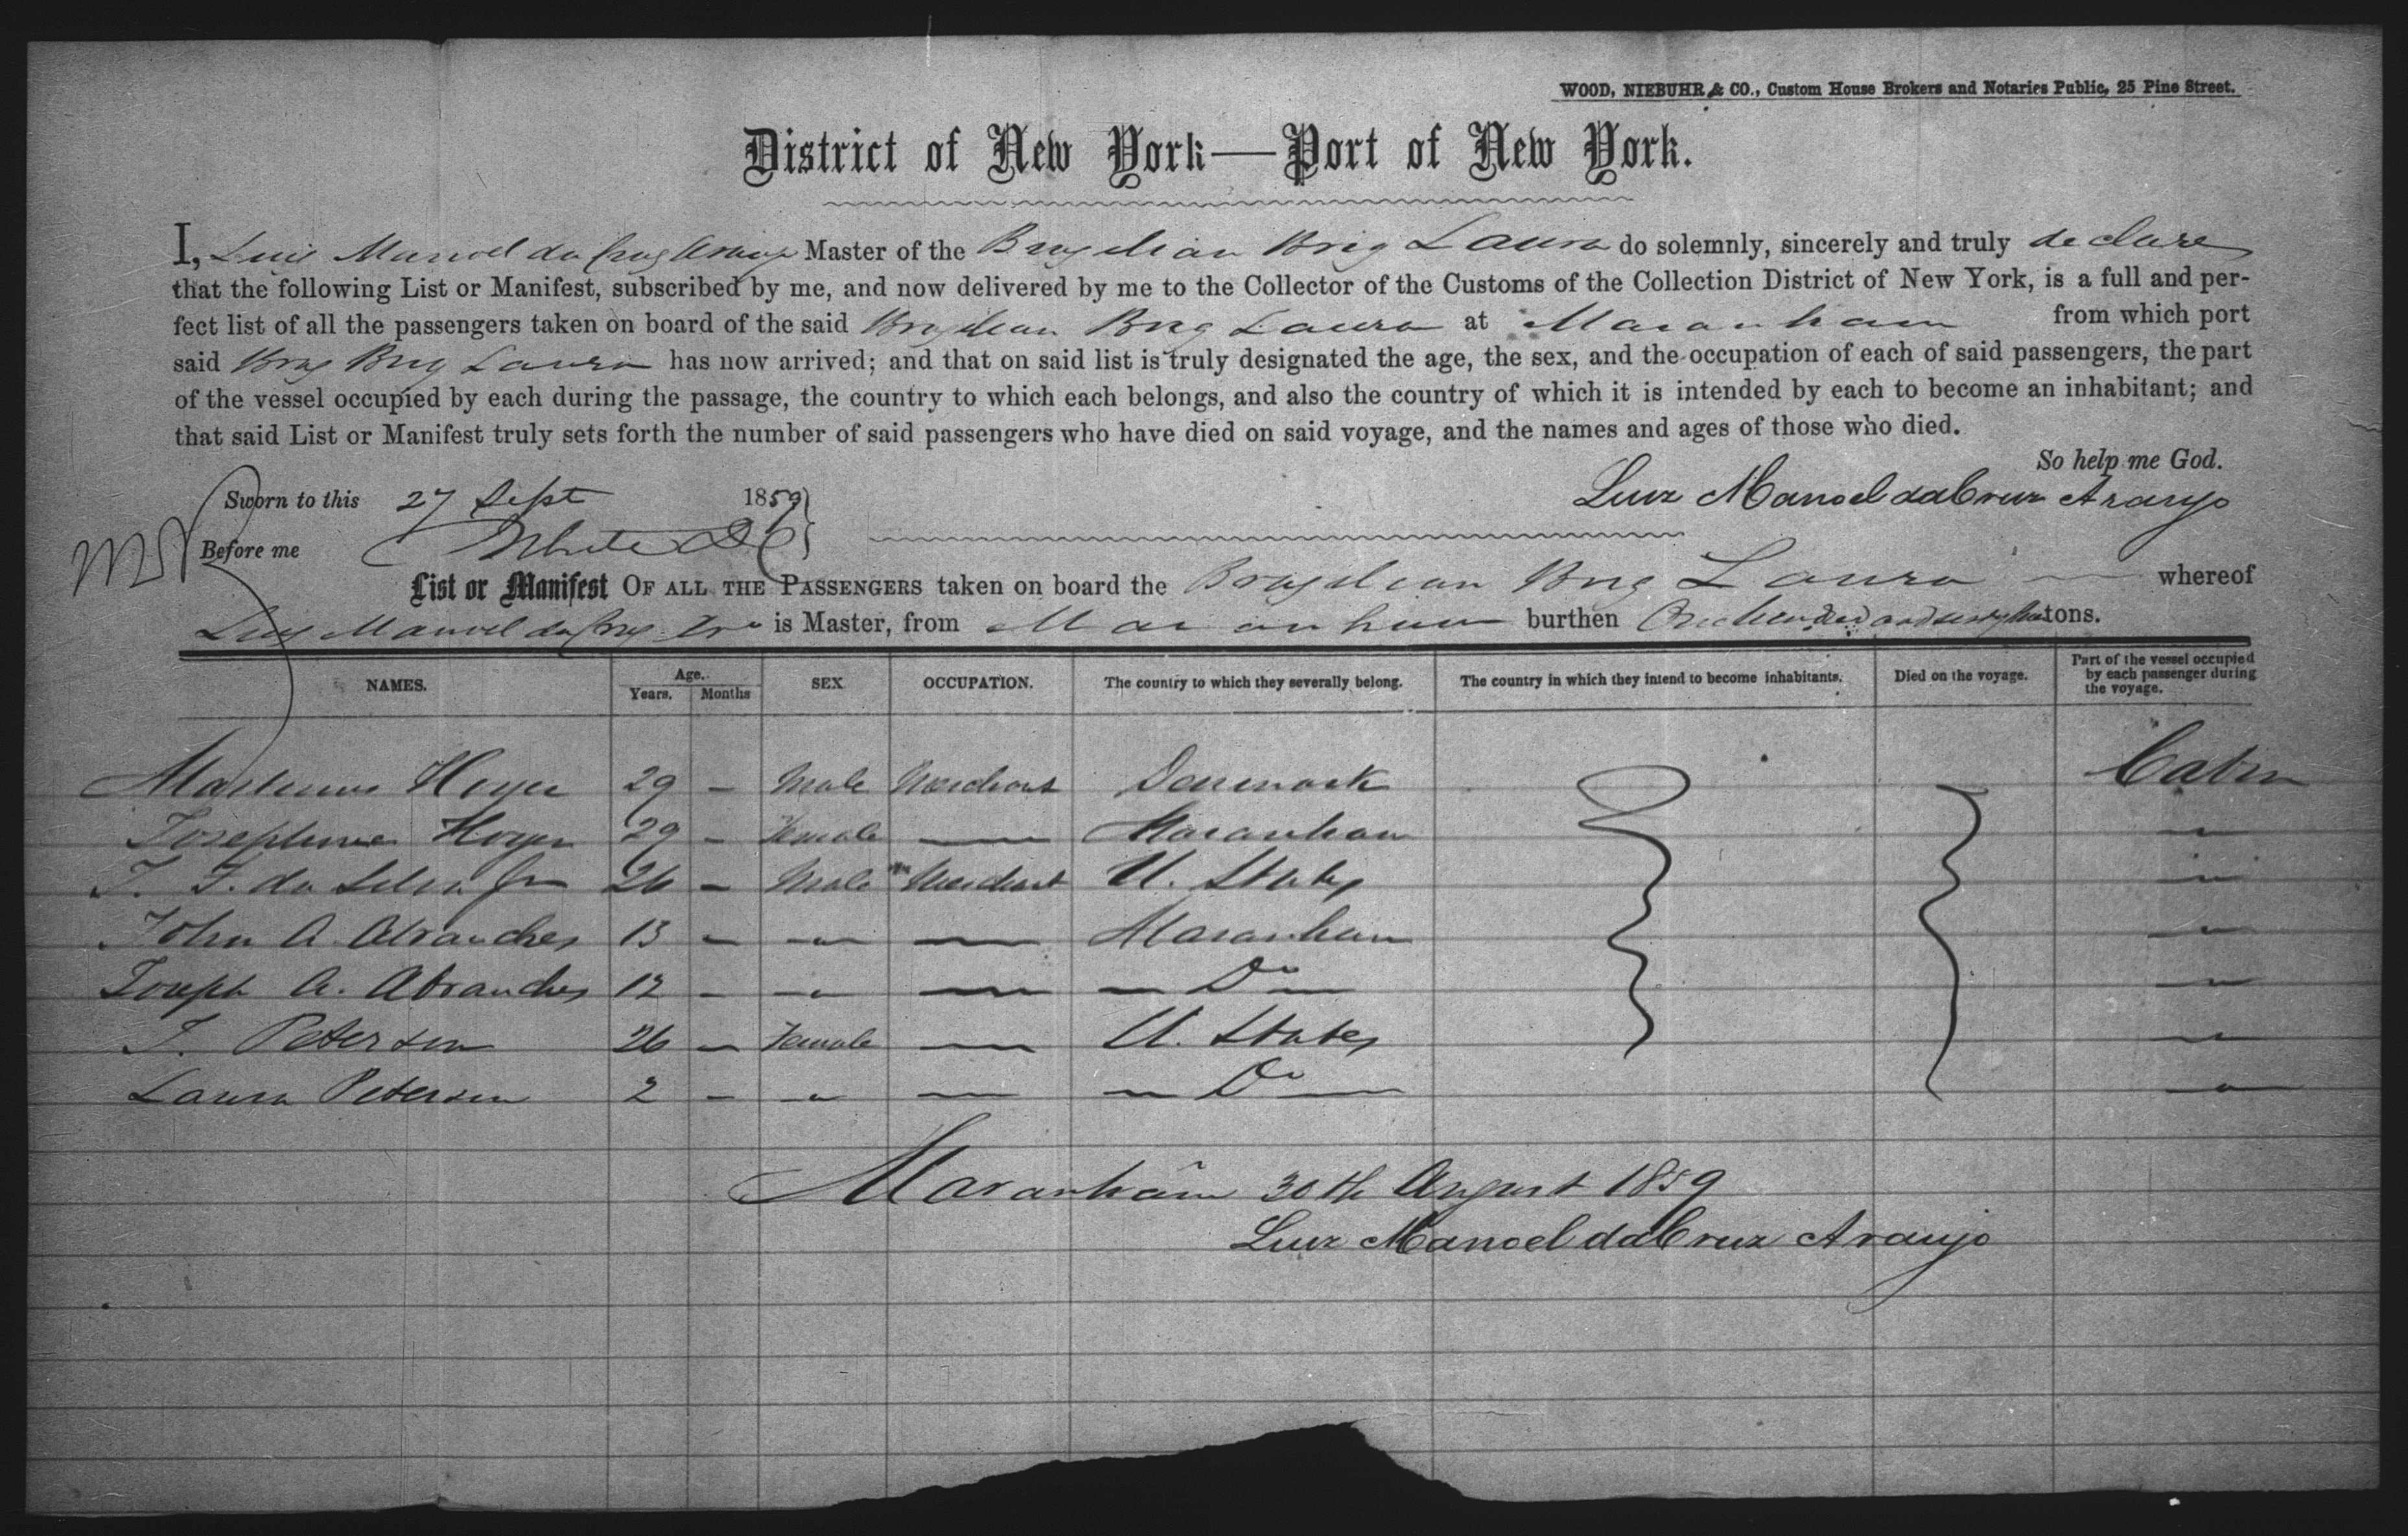 WOOD, NIEBUHR & CO., Custom House Brokers and Notaries Public, 25 Pine Street.
District of New York—Port of New York.
I, Luis Manoel da Cruz Araujo Master of the Brazilian Brig Laura do solemnly, sincerely and truly declare
that the following List or Manifest, subscribed by me, and now delivered by me to the Collector of the Customs of the Collection District of New York, is a full and per-
fect list of all the passengers taken on board of the said Brazilian Brig Laura at Maranham from which port
said Braz Brig Laura has now arrived; and that on said list is truly designated the age, the sex, and the occupation of each of said passengers, the part
of the vessel occupied by each during the passage, the country to which each belongs, and also the country of which it is intended by each to become an inhabitant; and
that said List or Manifest truly sets forth the number of said passengers who have died on said voyage, and the names and ages of those who died.
So help me God.
Sworn to this 27 Sept 1859 Luiz Manoel da Cruz Araujo
Before me White
List or Manifest OF ALL THE PASSENGERS taken on board the Brazilian Brig Laura whereof
Luiz Manoel da Cruz is Master, from Maranham burthen One hundred and tons.
NAMES. Age. Years. Months SEX OCCUPATION. The country to which they severally belong. The country in which they intend to become inhabitants. Died on the voyage. Part of the vessel occupied by each passenger during the voyage.
Martinus Hoyer 29 – Male Merchant Denmark Cabin
Josephine Hoyer 29 – Female — Maranham "
J. F. da Silva Jr 26 – Male Merchant U. States "
John A. Abranches 13 – " — Maranham "
Joseph A. Abranches 12 – " — Do "
J. Peterson 26 – Female — U. States "
Laura Peterson 2 – " — Do "
Maranham 30th August 1859
Luiz Manoel da Cruz Araujo